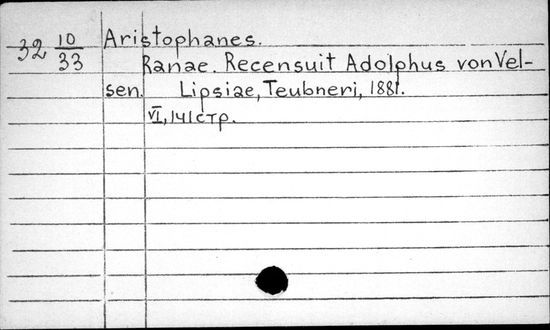 32 10/33 Aristophanes.
Ranae. Recensuit Adolphus von Vel-
sen. Lipsiae, Teubneri, 1881.
VI, 141 стр.